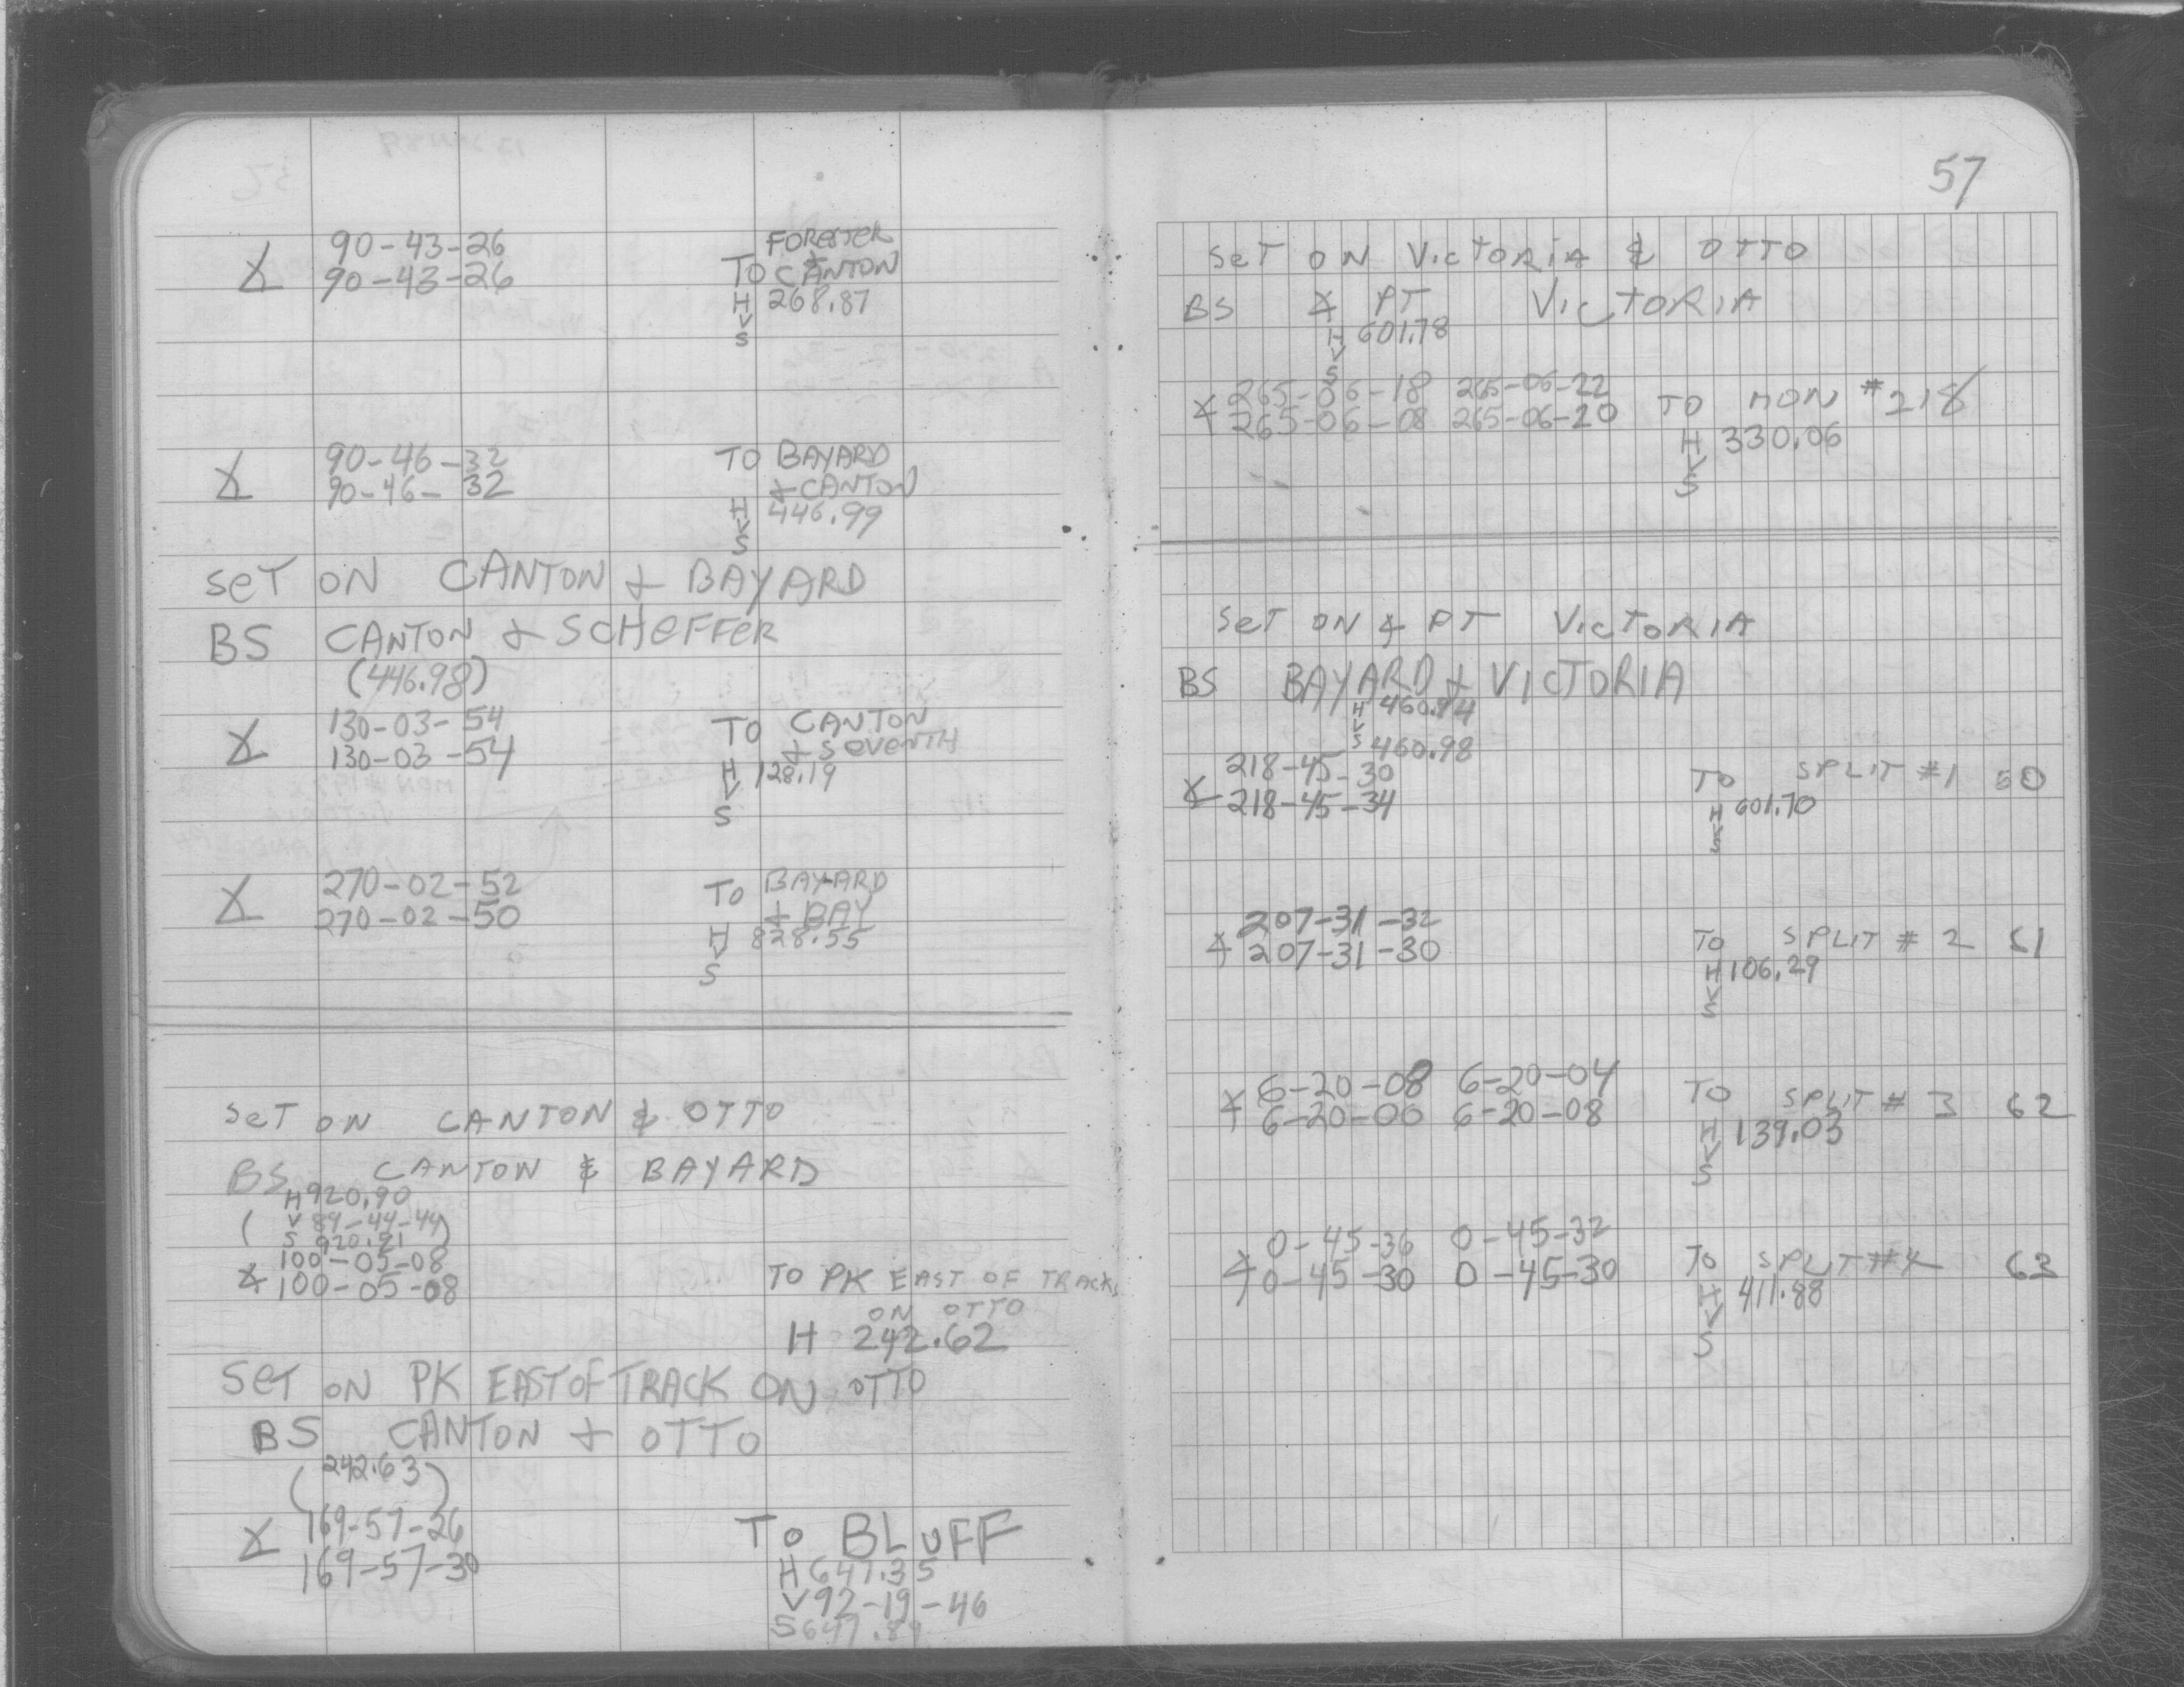 ∡ 90-43-26 FORESTER
90-43-26 TO & CANTON
H 268.87
V
S
∡ 90-46-32 TO BAYARD
90-46-32 & CANTON
H 446.99
V
S
SET ON CANTON & BAYARD
BS CANTON & SCHEFFER
(446.98)
∡ 130-03-54 TO CANTON
130-03-54 & SEVENTH
H 128.19
V
S
∡ 270-02-52 TO BAYARD
270-02-50 & BAY
H 828.55
V
S
SET ON CANTON & OTTO
BS CANTON & BAYARD
H 920.90
( V 89-44-44)
S 920.91
100-05-08
∡ 100-05-08 TO PK EAST OF TRACKS
ON OTTO
H 242.62
SET ON PK EAST OF TRACK ON OTTO
BS CANTON & OTTO
(242.63)
∡ 169-57-26 TO BLUFF
169-57-30
H 647.35
V 92-19-46
S 647.89
57
SET ON VICTORIA & OTTO
BS ∡ PT VICTORIA
H 601.78
V
S
265-06-18 265-06-22
∡ 265-06-08 265-06-20 TO MON #218
H 330.06
V
S
SET ON ∡ PT VICTORIA
BS BAYARD & VICTORIA
H 460.94
V
S 460.98
218-45-30 TO SPLIT #1
∡ 218-45-34
H 601.70
V
S
207-31-32
∡ 207-31-30 TO SPLIT # 2 61
H 106.29
V
S
6-20-08 6-20-04
∡ 6-20-00 6-20-08 TO SPLIT # 3 62
H 139.03
V
S
0-45-36 0-45-32
∡ 0-45-30 0-45-30 TO SPLIT #4 63
H 411.88
V
S